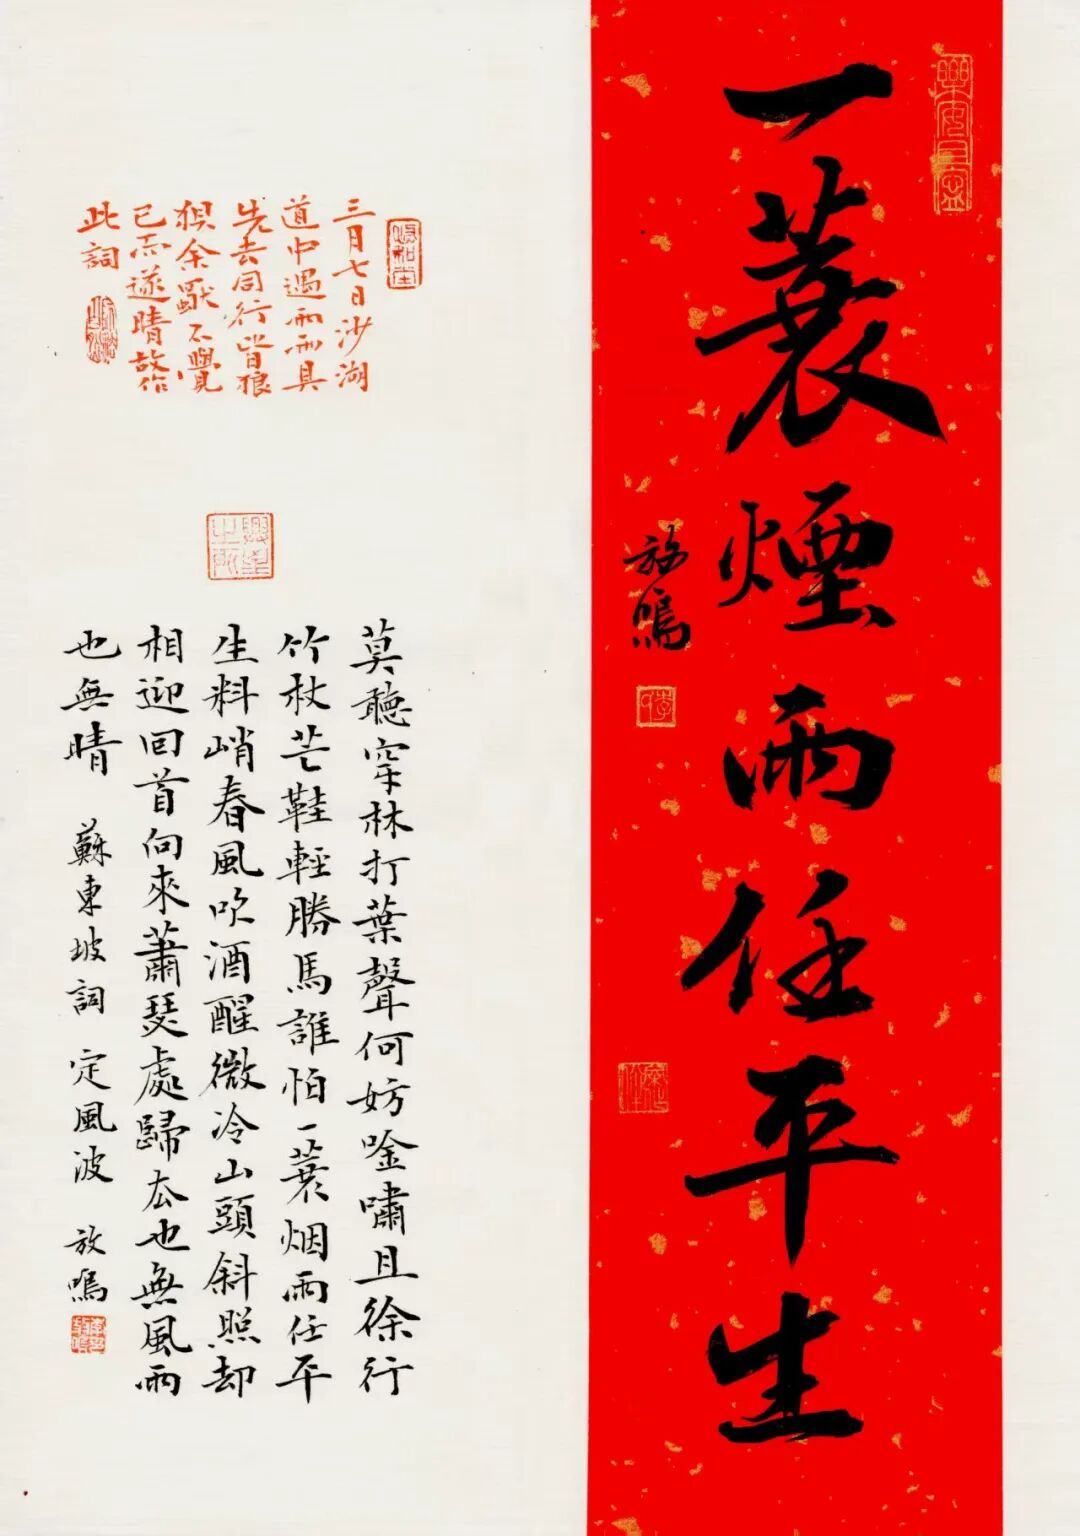 一蓑煙雨任平生
放鳴
三月七日沙湖
道中遇雨雨具
先去同行皆狼
狽余獨不覺
已而遂晴故作
此詞
莫聽穿林打葉聲何妨唫嘯且徐行
竹杖芒鞋輕勝馬誰怕一蓑烟雨任平
生料峭春風吹酒醒微冷山頭斜照却
相迎回首向來蕭瑟處歸去也無風雨
也無晴 蘇東坡詞 定風波 放鳴